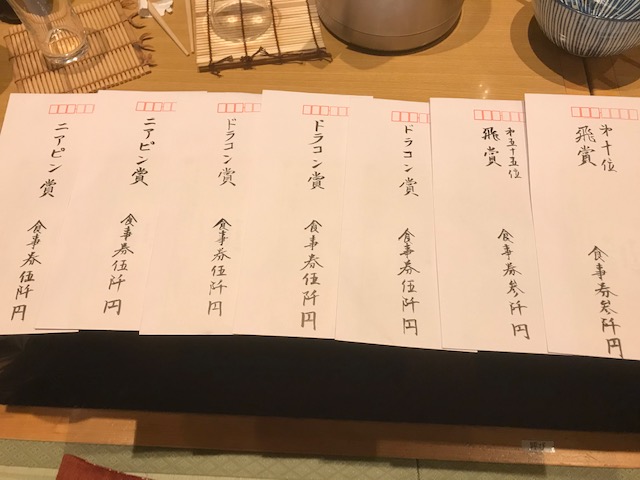 第十位
飛賞
食事券参阡円
第五十五位
飛賞
食事券参阡円
ドラコン賞
食事券伍阡円
ドラコン賞
食事券伍阡円
ドラコン賞
食事券伍阡円
ニアピン賞
食事券伍阡円
ニアピン賞
食事券伍阡円